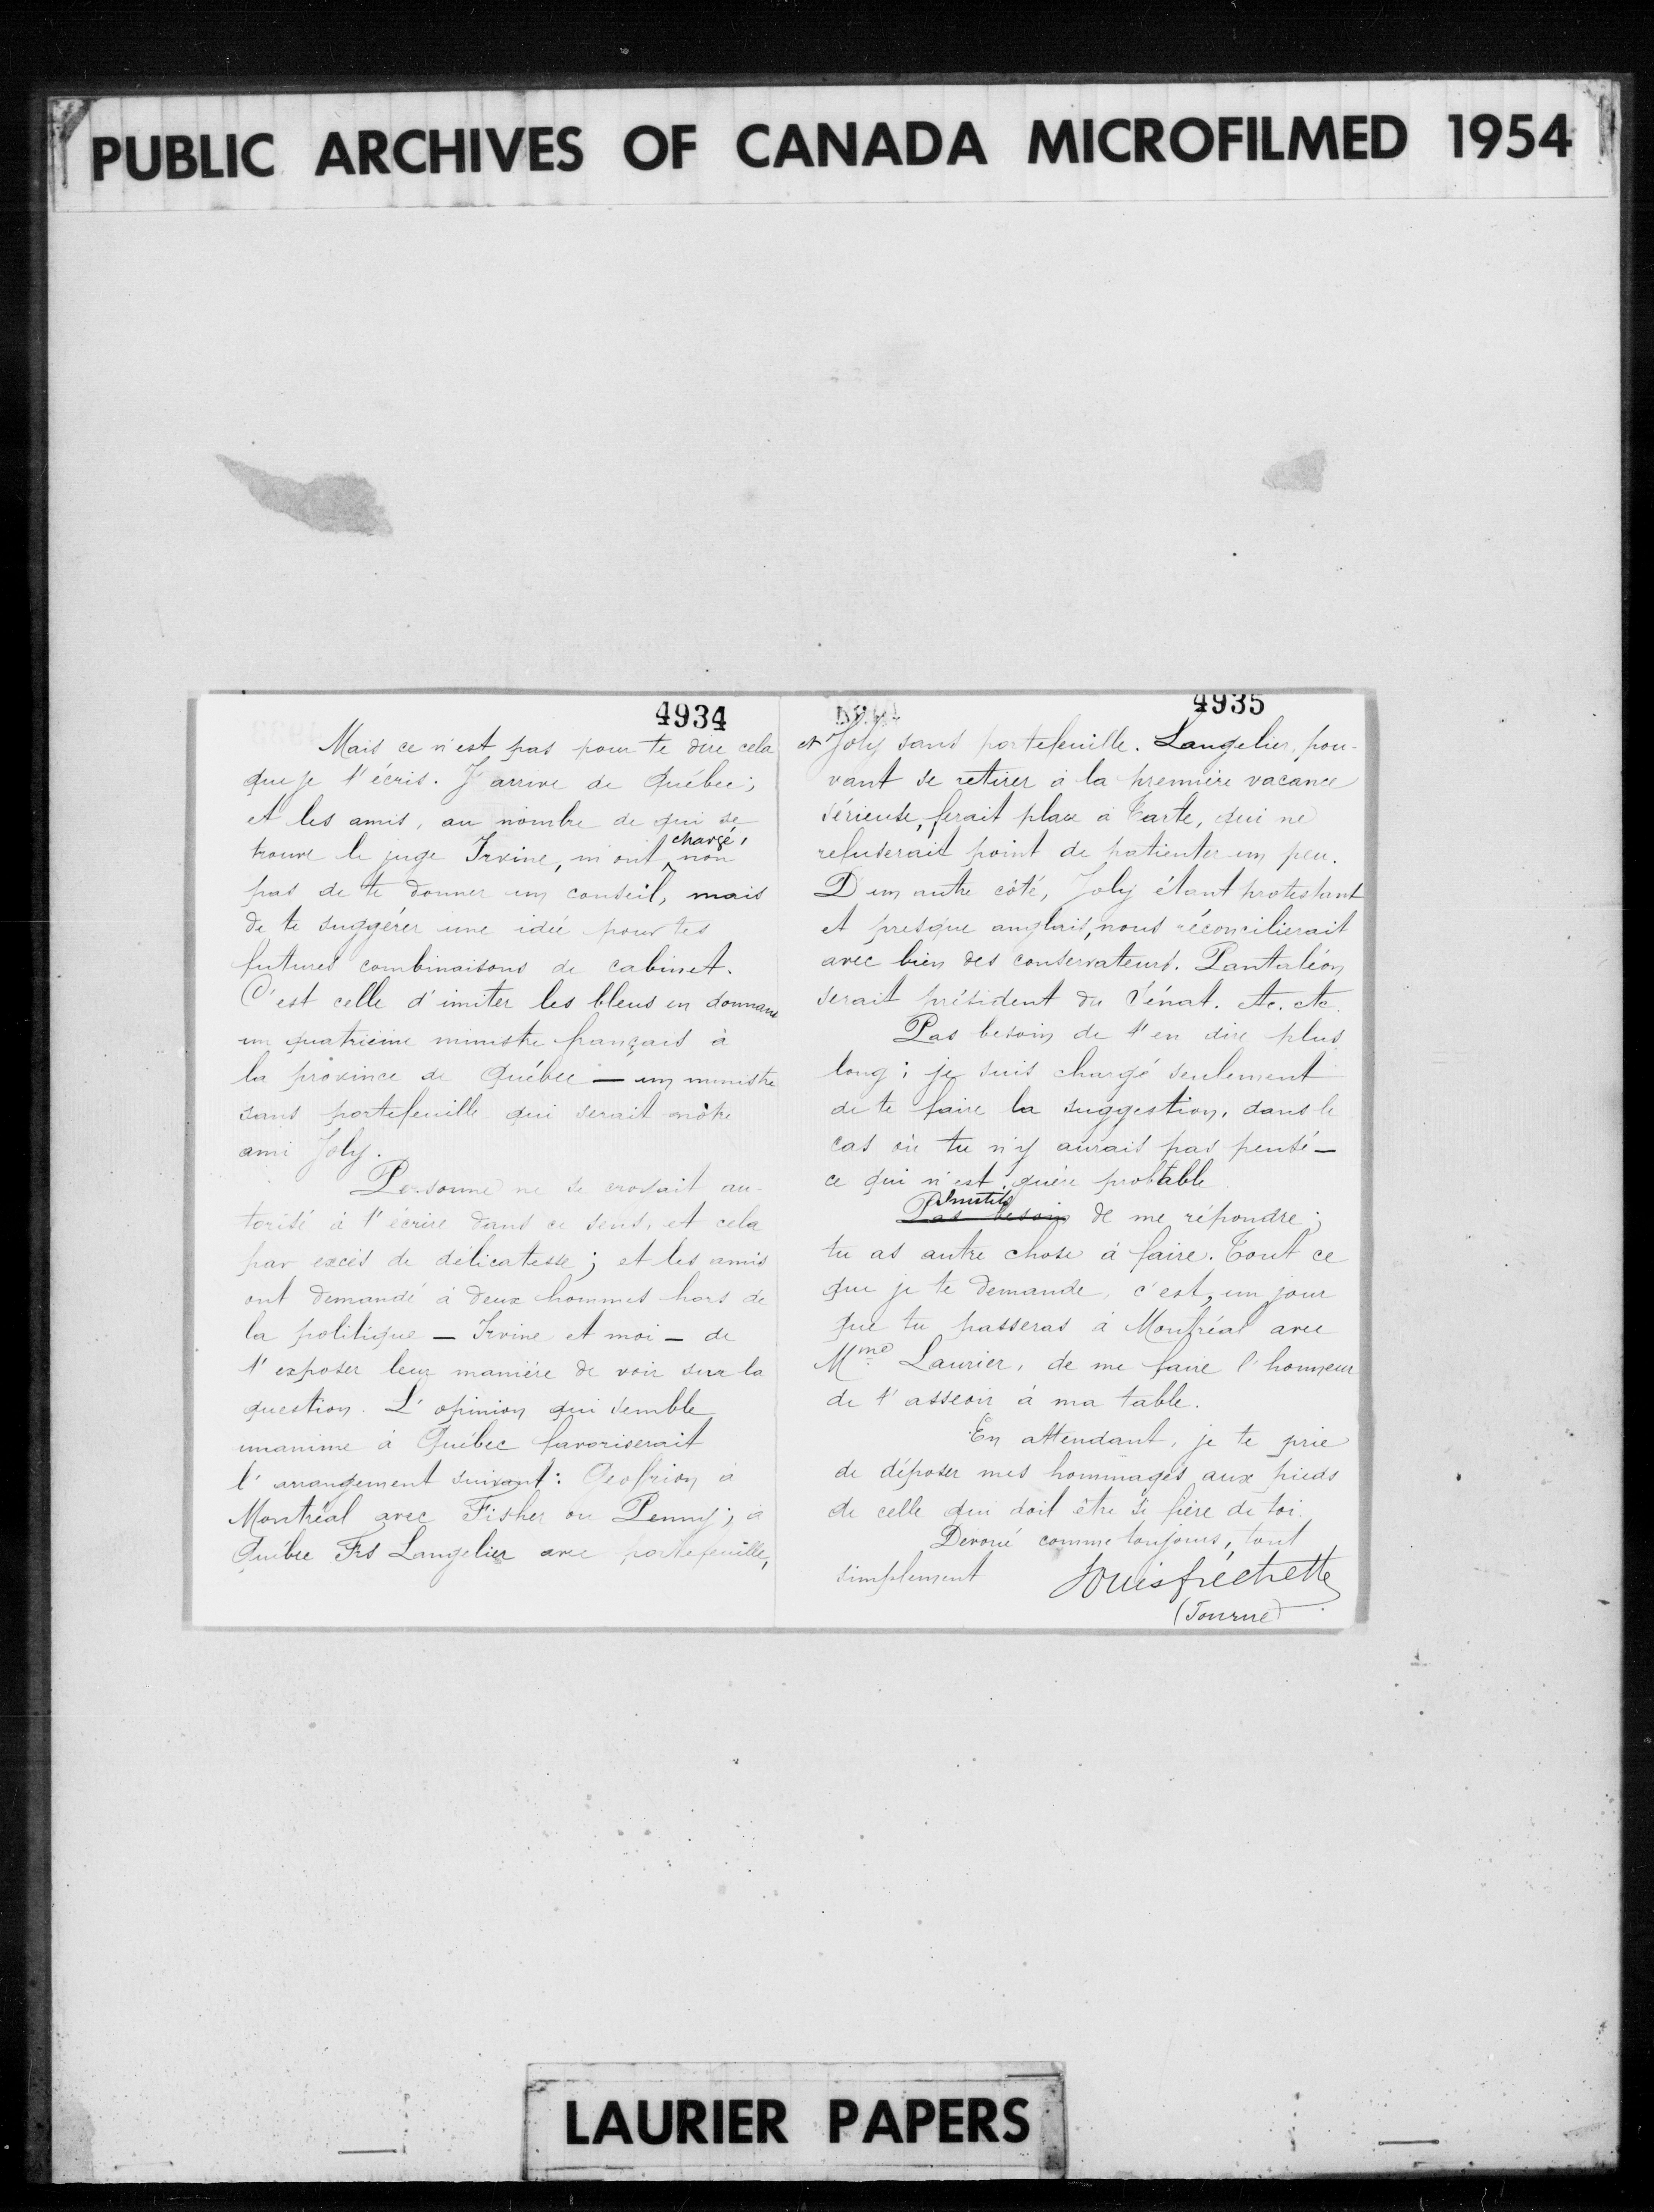 PUBLIC ARCHIVES OF CANADA MICROFILMED 1954
4934
Mais ce n'est pas pour te dire cela
que je t'écris. J'arrive de Québec;
et les amis, au nombre de qui se
trouve le juge Irvine, m'ont chargé, non
pas de te donner un conseil, mais
de te suggérer une idée pour tes
futures combinaisons de cabinet.
C'est celle d'imiter les bleus en donnant
un quatrième ministre français à
la province de Québec — un ministre
sans portefeuille qui serait nôtre
ami Joly.
Personne ne se croyait au-
torisé à t'écrire dans ce sens, et cela
par excès de délicatesse; et les amis
ont demandé à deux hommes hors de
la politique — Irvine et moi — de
t'exposer leur manière de voir sur la
question. L'opinion qui semble
unanime à Québec favoriserait
l'arrangement suivant: Geofrion à
Montréal avec Fisher ou Penny; à
Québec Frs Langelier avec portefeuille,
4935
et Joly sans portefeuille. Langelier, pou-
vant se retirer à la première vacance
sérieuse, ferait place à Tarte, qui ne
refuserait point de patienter un peu.
D'un autre côté, Joly étant protestant
et presque anglais, nous réconcilierait
avec bien des conservateurs. Pantaléon
serait président du Sénat. etc. etc.
Pas besoin de t'en dire plus
long; je suis chargé seulement
de te faire la suggestion, dans le
cas où tu n'y aurais pas pensé —
ce qui n'est guère probable.
Inutile
Pas besoin de me répondre;
tu as autre chose à faire. Tout ce
que je te demande, c'est, un jour
que tu passeras à Montréal avec
Mme Laurier, de me faire l'honneur
de t'asseoir à ma table.
En attendant, je te prie
de déposer mes hommages aux pieds
de celle qui doit être si fière de toi.
Dévoué comme toujours, tout
simplement Louis Fréchette
(Tourne)
LAURIER PAPERS